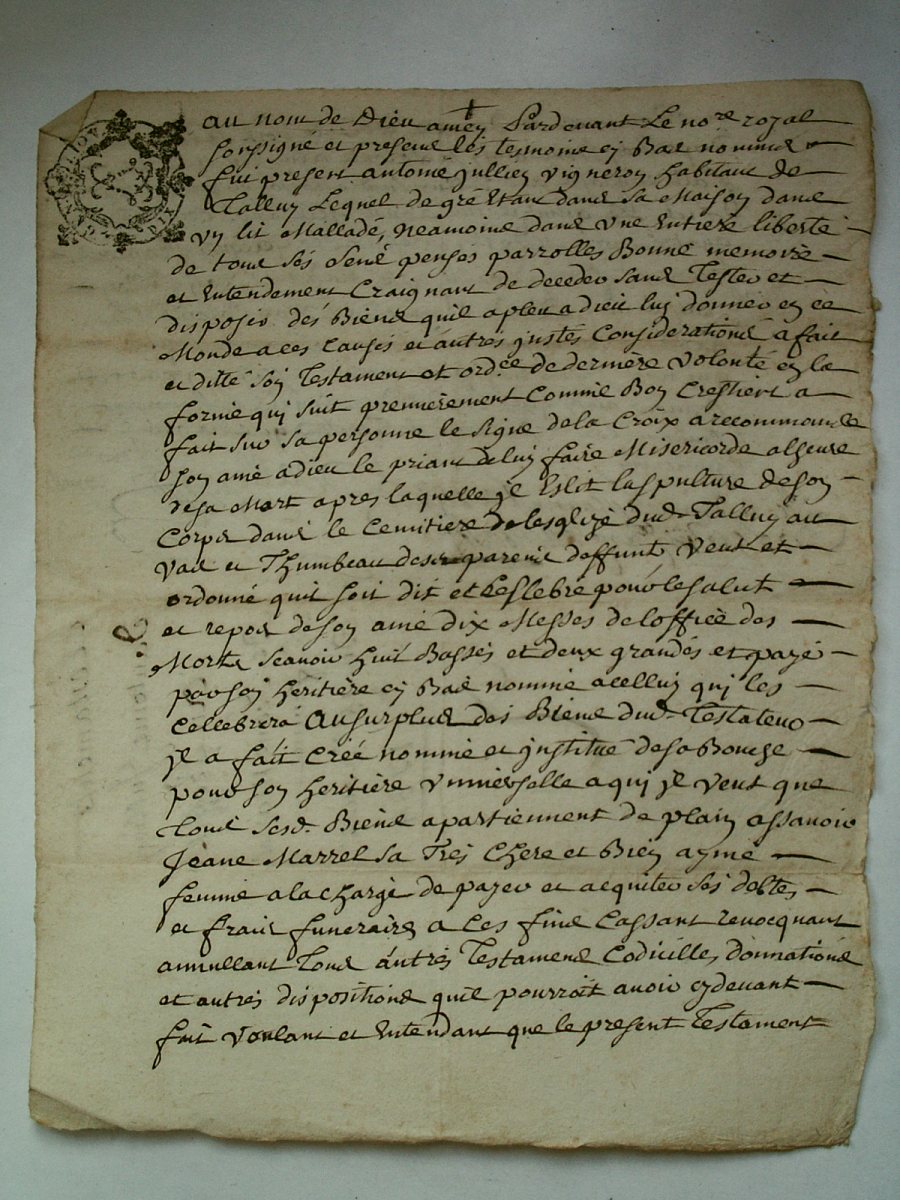 Au nom de Dieu amen Pardevant Le no.re royal
sorssigné et presend les tesmoins ey Bas nommes
fut present antoine jullien vigneron habitant de
Talluy Lequel de gré Etant dans sa Maison dans
un lit Mallade, neamoins dans une Entiere liberté
de tous ses sens penses parrolles Bonne memoire
et Entendement Craignant de deceder sans Tester et
disposer des Biens quil a pleu a dieu luy donner en ce
Monde a ces Causes et autres justes Considerations a fait
et ditté son Testament et ord.ce de derniere volonté en la
forme qui suit premierement Comme Bon Crestient a
fait sur sa personne le signe de la Croix a recommande
son ame a dieu le priant de luy faire Misericorde a lheure
de sa Mort apres laquelle je Eslit la spulture de son
Corps dans le Cemitiere de lesglize dud. Talluy au
vas et Thumbeau de ses parens deffunts veut et
ordonne quil soit dit et Ceslebré pour le salut
et repos de son ame dix Messes de loffice des
Morts scavoir huit Basses et deux grandes et payé
par son heritiere ey Bas nommee a celluy qui les
Cellebrera Au surplus des Biens dud. Testateur
jl a fait Creé nommé et jnstitué de sa Bouche
pour son heritiere vniverselle a qui jl veut que
Tous sesd. Biens apartiennent de plain assavoir
Jeane Marrel sa Tres Chere et Bien aymé
femme a la charge de payer et acquiter ses debtes
et frais funeraires a Ces fins Cassant revocquant
annullant Tous autres Testamens Codicilles, donnations
et autres dispositions quil pourroit avoir cydevant
fait voulant et Entendant que le present Testament